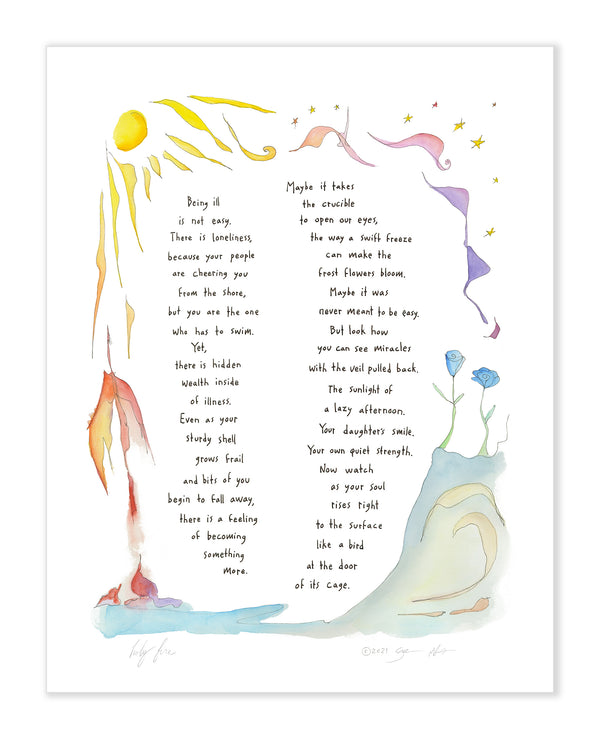 Being ill
is not easy.
There is loneliness,
because your people
are cheering you
from the shore,
but you are the one
who has to swim.
Yet,
there is hidden
wealth inside
of illness.
Even as your
sturdy shell
grows frail
and bits of you
begin to fall away,
there is a feeling
of becoming
something
more.
Maybe it takes
the crucible
to open our eyes,
the way a swift freeze
can make the
frost flowers bloom.
Maybe it was
never meant to be easy.
But look how
you can see miracles
with the veil pulled back.
The sunlight of
a lazy afternoon.
Your daughter's smile.
Your own quiet strength.
Now watch
as your soul
rises right
to the surface
like a bird
at the door
of its cage.
holy fire
©2021